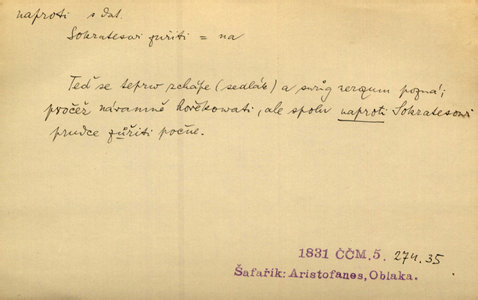 naproti s dat.
Sokratesowi zuřiti = na
Teď se teprw zchápe (sedlák) a swůg rozum pozná;
pročež náramně hořekowati, ale spolu naproti Sokratesowi
prudce zuřiti počne.
1831 ČČM. 5. 274. 35
Šafařík: Aristofanes, Oblaka.